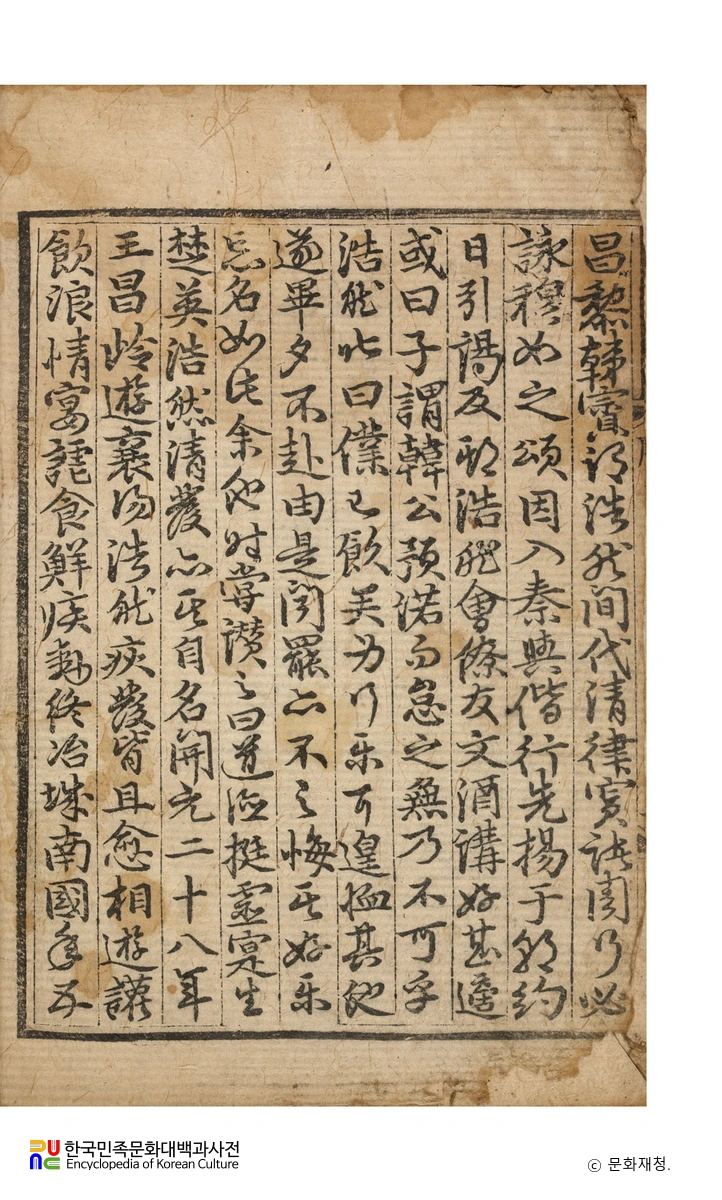 昌黎韓賓謂浩然間代清律寘諸周行必
詠穆如之頌因入秦與偕行先揚于朝約
日引謁及期浩然會僚友文酒講好甚適
或曰子謂韓公預諾而怠之無乃不可乎
浩然叱曰僕已飲矣身行乐耳遑恤其他
遂畢夕不赴由是間罷亦不之悔其好乐
忘名如此余他时嘗讃之曰道漾挺靈寔生
楚英浩然清發亦其自名開元二十八年
王昌岭遊襄陽浩然疾發背且愈相遊讙
飲浪情宴謔食鮮疾動終冶城南國年五
한국민족문화대백과사전
Encyclopedia of Korean Culture
ⓒ 문화재청.